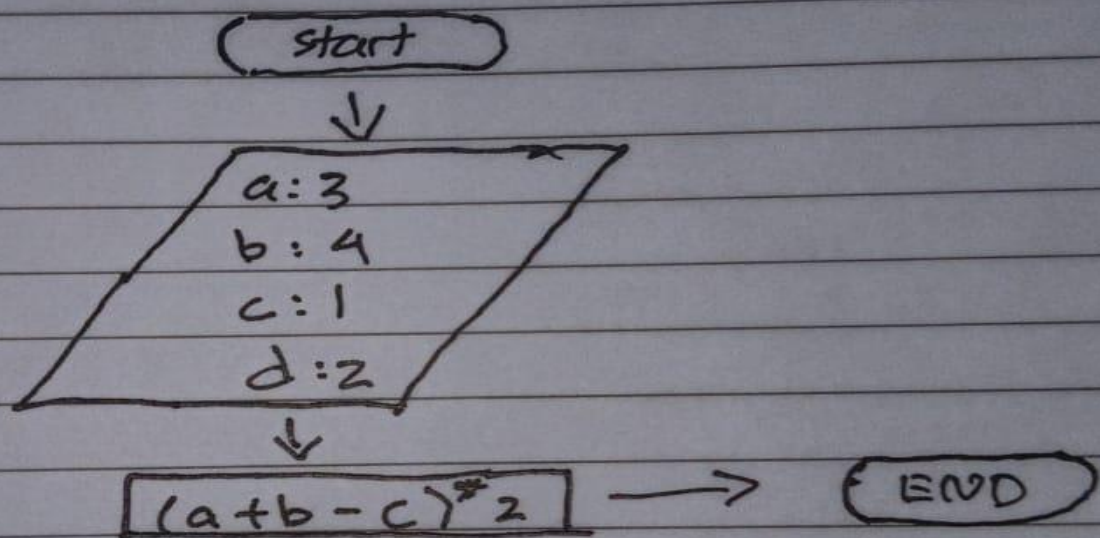 start
a: 3
b: 4
c: 1
d: 2
(a + b - c) * 2
END